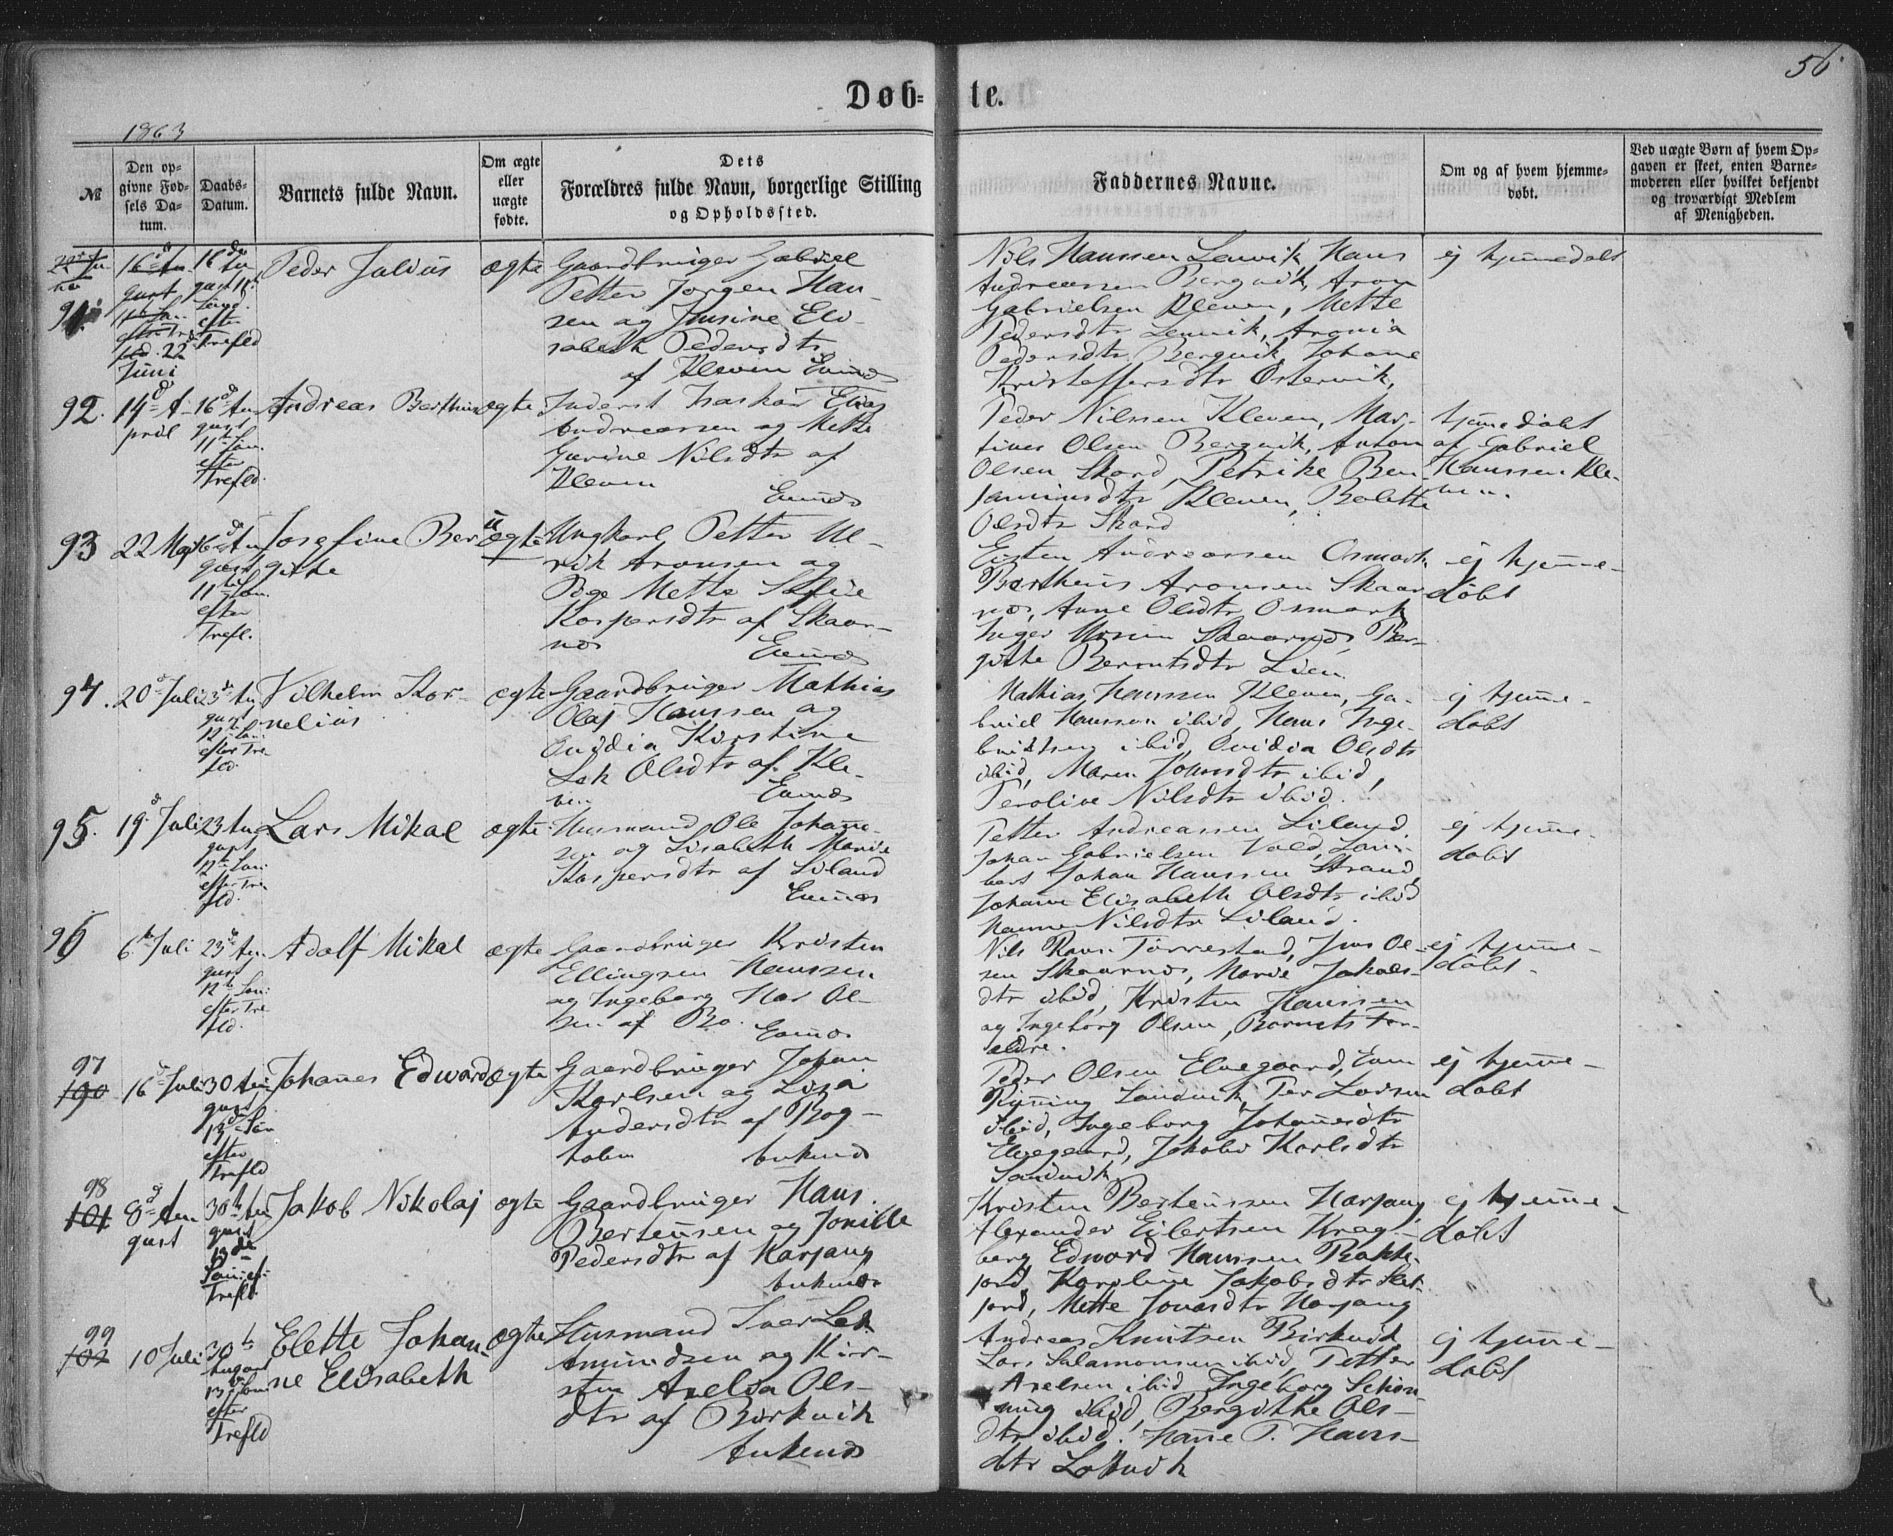 56
Døb= te.
1863
№
Den op-
givne Fød-
sels Da-
tum.
Daabs-
Datum.
Barnets fulde Navn.
Om ægte
eller
uægte
fødte.
Dets
Forældres fulde Navn, borgerlige Stilling
og Opholdssted.
Faddernes Navne.
Om og af hvem hjemme-
døbt.
Ved uægte Børn af hvem Op-
gaven er skeet, enten Barne-
moderen eller hvilket bekjendt
og troværdigt Medlem
af Menigheden.
91.
22
Juni
16 Au
gust 11
efter
Trefld
Peder Julius
ægte
Gaardbruger Gabriel
Petter Jørgen Han-
sen og Jusine Eli
sabeth Pedersdtr
af Kleven Evenæs
Nils Hanssen Lenvik, Hans
Andreassen Bergvik, Aron
Gabrielsen Kleven, Mette
Pedersdtr Lenvik, Aronia
Pedersdtr Bergvik, Johane
Kristoffersdtr Østervik,
ej hjemmedøbt
92.
14 A-
pril
16 Au
gust
11 Søn.
efter
Trefld.
Andreas Berthin
ægte
Inderst Elias
Andreassen og Mette
Gurine Nilsdtr af
Kleven Evenæs
Peder Nilssen Kleven, Mar-
tines Olsen Bergvik, Anton
Olsen Skard, Petrike Ben-
jaminsdtr Kleven, Beletthe
Olsdtr Skard
hjemmedøbt
af Gabriel
Hanssen Kle-
ven.
93
22 Maj
16 Au
gust
11 Søn.
efter
Trefl.
Josefine Ber
githe
uægte
Ungkarl Petter Ul-
rik Aronsen og
Pige Mette Sofie
Kaspersdtr af Skaar-
næs Evenæs
Eisten Andreassen Osmark
Bertheus Aronsen Skaar
næs, Anne Olsdtr Osmark
Inger Skaarnæs, Ber-
githe Berentsdtr Lien
ej hjemme-
døbt
94.
20 Juli
23 Au
gust
12 Søn
efter Tre
fld.
Vilhelm Kor-
nelius
ægte
Gaardbruger Mathias
Olaj Hanssen og
Ovidia Kirstine
Lek Olsdtr af Kle-
ven Evenæs
Mathias Hanssen Kleven, Ga-
briel Hanssen ibid, Hans Inge-
brictsen ibid, Ovidia Olsdtr
ibid, Maren Jonsdtr ibid,
Peroline Nilsdtr ibid.
ej hjemme-
døbt
95.
19 Juli
23 Au
gust
12 Søn
efter Tre
fld.
Lars Mikal
ægte
Husmand Ole Johanne-
sen og Lisabeth Marie
Kaspersdtr af Liland
Evenæs
Petter Andreassen Liland,
Johan Gabrielsen Vold, Lam-
bert Johan Hanssen Strand,
Johanne Elisabeth Olsdtr ibid
Hanne Nilsdtr Liland.
ej hjemme-
døbt
96
6 Juli
23 Au
gust
12 Søn
efter Tre
fld.
Adolf Mikal
ægte
Gaardbruger Kristen
Ellingsen Hanssen
og Ingeborg Mar Ol-
sen af Bø. Evenæs
Nils Ravn Tørrestad, Jens Ol-
sen Skaarnæs, Marie Jakobs-
dtr ibid, Kristen Hanssen
og Ingeborg Olsen, Barnets For-
ældre.
ej hjemme-
døbt.
97
100
16 Juli
30 Au
gust
13 Søn
efter
Trefld
Johannes Edward
ægte
Gaardbruger Johan
Karlsen og Lisa
Andersdtr af Bog-
holm Ankenæs
Peder Olsen Elvegaard, Even
Rynning Sandvik, Per Larsen
ibid, Ingeborg Johannesdtr
Elvegaard, Jakobe Karlsdtr
Sandvik
ej hjemme-
døbt
98
101
8 Au
gust
30 Au
gust
13de
Søn ef.
Trefld
Jakob Nikolaj
ægte
Gaardbruger Hans
Berteussen og Jonille
Pedersdtr af Harjang
Ankenæs
Kristen Berteussen Harjang,
Alexander Eilertsen Krag-
berg, Edward Hanssen
Karoline Jakobsdtr
jord, Mette Jonasdtr Harjang
ej hjemme-
døbt
99
102
10 Juli
30
August
13 Søn
efter
Trefld
Elette Johan-
ne Elisabeth
ægte
Husmand Iver Lek
Amundsen og Kir-
sten Axelia Ols-
dtr af Birkvik
Ankenæs
Andreas Knutsen Birkvik
Lars Salamonsen ibid, Petter
Axelsen ibid Ingeborg Schøn-
ning ibid, Bergithe Ols-
dtr ibid. Hanne P. Hans-
dtr
ej hjemme-
døbt